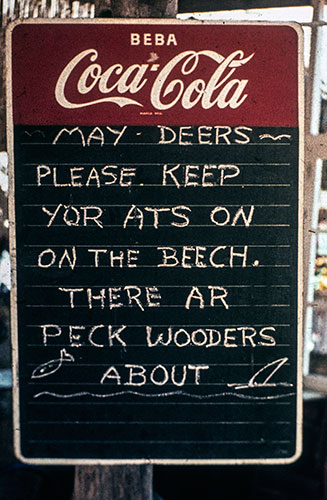 BEBA
Coca-Cola
MAY-DEERS
PLEASE. KEEP
YOR ATS ON
ON THE BEECH.
THERE AR
PECK WOODERS
ABOUT